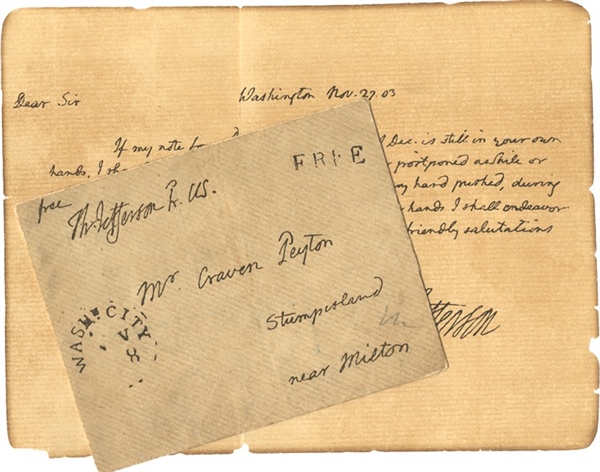 Dear Sir
Washington Nov. 27. 03
If my note for
Dec. is still in your own
hands, I
postponed awhile or
my hand pushed, during
hands I shall endeavor
friendly salutations
fferson
free
Th: Jefferson Pr. US.
FREE
Mr. Craven Peyton
Stumpisland
near Milton
WASH. CITY